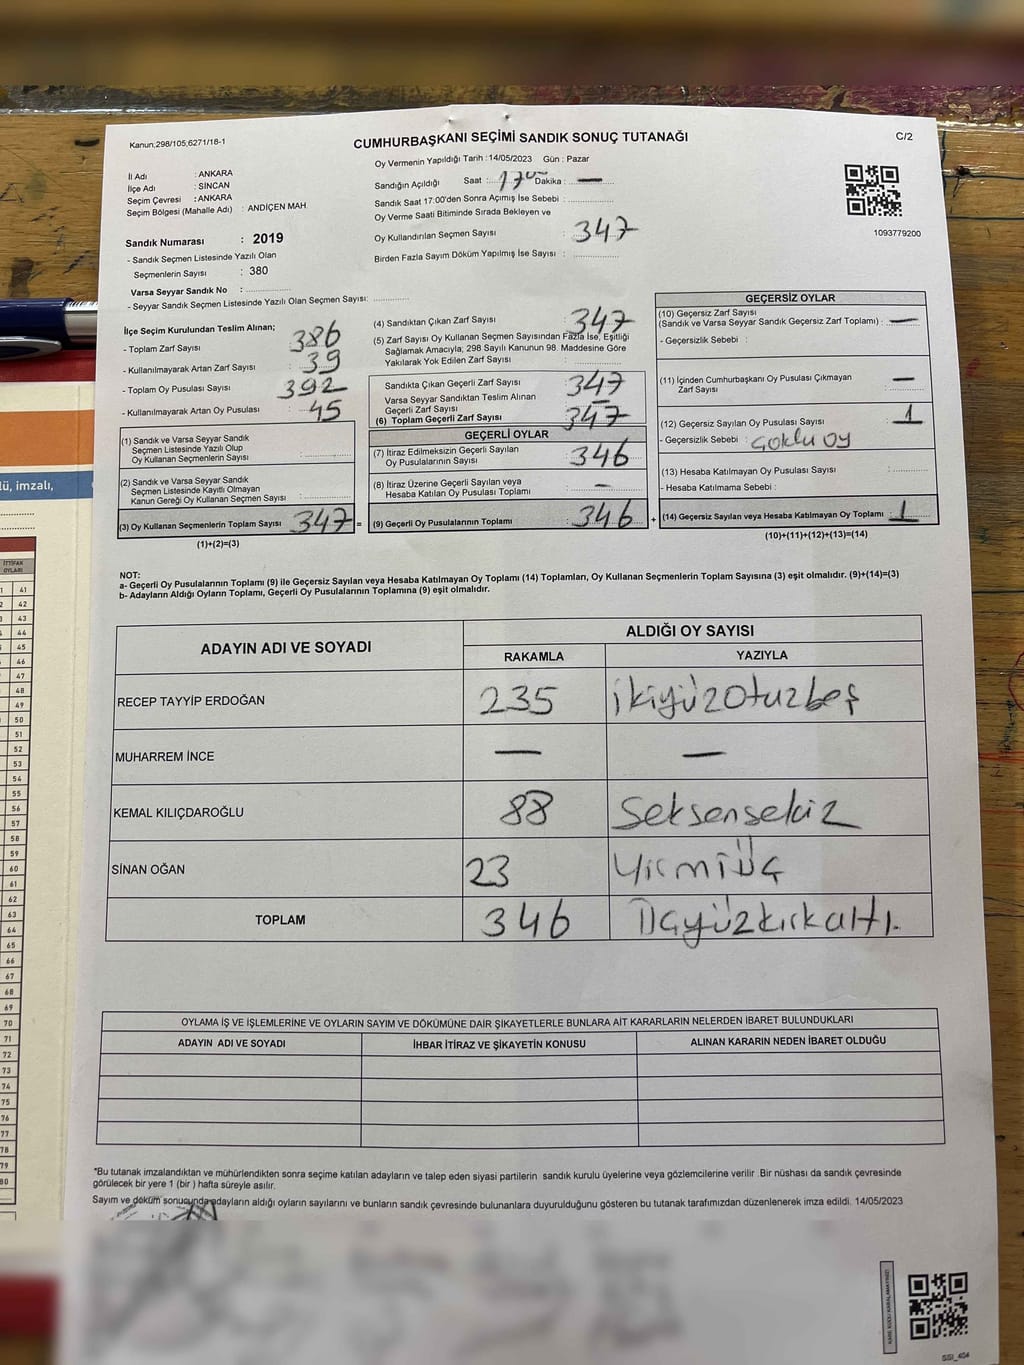 Kanun;298/105;6271/18-1
CUMHURBAŞKANI SEÇİMİ SANDIK SONUÇ TUTANAĞI
C/2
Oy Vermenin Yapıldığı Tarih : 14/05/2023 Gün : Pazar
İl Adı : ANKARA
İlçe Adı : SİNCAN
Seçim Çevresi : ANKARA
Seçim Bölgesi (Mahalle Adı) : ANDİÇEN MAH.
Sandığın Açıldığı Saat : 17 00 Dakika : —
Sandık Saat 17:00'den Sonra Açılmış İse Sebebi :
Oy Verme Saati Bitiminde Sırada Bekleyen ve
Oy Kullandırılan Seçmen Sayısı : 347
Birden Fazla Sayım Döküm Yapılmış İse Sayısı :
1093779200
Sandık Numarası : 2019
- Sandık Seçmen Listesinde Yazılı Olan
Seçmenlerin Sayısı : 380
Varsa Seyyar Sandık No :
- Seyyar Sandık Seçmen Listesinde Yazılı Olan Seçmen Sayısı:
İlçe Seçim Kurulundan Teslim Alınan;
- Toplam Zarf Sayısı : 386
- Kullanılmayarak Artan Zarf Sayısı : 39
- Toplam Oy Pusulası Sayısı : 392
- Kullanılmayarak Artan Oy Pusulası : 45
(1) Sandık ve Varsa Seyyar Sandık
Seçmen Listesinde Yazılı Olup
Oy Kullanan Seçmenlerin Sayısı :
(2) Sandık ve Varsa Seyyar Sandık
Seçmen Listesinde Kayıtlı Olmayan
Kanun Gereği Oy Kullanan Seçmen Sayısı :
(3) Oy Kullanan Seçmenlerin Toplam Sayısı 347 =
(1)+(2)=(3)
(4) Sandıktan Çıkan Zarf Sayısı : 347
(5) Zarf Sayısı Oy Kullanan Seçmen Sayısından Fazla İse, Eşitliği
Sağlamak Amacıyla; 298 Sayılı Kanunun 98. Maddesine Göre
Yakılarak Yok Edilen Zarf Sayısı :
Sandıkta Çıkan Geçerli Zarf Sayısı : 347
Varsa Seyyar Sandıktan Teslim Alınan
Geçerli Zarf Sayısı : —
(6) Toplam Geçerli Zarf Sayısı : 347
GEÇERLİ OYLAR
(7) İtiraz Edilmeksizin Geçerli Sayılan
Oy Pusulalarının Sayısı : 346
(8) İtiraz Üzerine Geçerli Sayılan veya
Hesaba Katılan Oy Pusulası Toplamı : —
(9) Geçerli Oy Pusulalarının Toplamı : 346 +
GEÇERSİZ OYLAR
(10) Geçersiz Zarf Sayısı
(Sandık ve Varsa Seyyar Sandık Geçersiz Zarf Toplamı) : —
- Geçersizlik Sebebi :
(11) İçinden Cumhurbaşkanı Oy Pusulası Çıkmayan
Zarf Sayısı : —
(12) Geçersiz Sayılan Oy Pusulası Sayısı : 1
- Geçersizlik Sebebi : çoklu oy
(13) Hesaba Katılmayan Oy Pusulası Sayısı :
- Hesaba Katılmama Sebebi :
(14) Geçersiz Sayılan veya Hesaba Katılmayan Oy Toplamı : 1
(10)+(11)+(12)+(13)=(14)
NOT:
a- Geçerli Oy Pusulalarının Toplamı (9) ile Geçersiz Sayılan veya Hesaba Katılmayan Oy Toplamı (14) Toplamları, Oy Kullanan Seçmenlerin Toplam Sayısına (3) eşit olmalıdır. (9)+(14)=(3)
b- Adayların Aldığı Oyların Toplamı, Geçerli Oy Pusulalarının Toplamına (9) eşit olmalıdır.
ADAYIN ADI VE SOYADI
ALDIĞI OY SAYISI
RAKAMLA YAZIYLA
RECEP TAYYİP ERDOĞAN 235 ikiyüzotuzbeş
MUHARREM İNCE — —
KEMAL KILIÇDAROĞLU 88 Seksensekiz
SİNAN OĞAN 23 Yirmiüç
TOPLAM 346 Üçyüzkırkaltı.
OYLAMA İŞ VE İŞLEMLERİNE VE OYLARIN SAYIM VE DÖKÜMÜNE DAİR ŞİKAYETLERLE BUNLARA AİT KARARLARIN NELERDEN İBARET BULUNDUKLARI
ADAYIN ADI VE SOYADI İHBAR İTİRAZ VE ŞİKAYETİN KONUSU ALINAN KARARIN NEDEN İBARET OLDUĞU
*Bu tutanak imzalandıktan ve mühürlendikten sonra seçime katılan adayların ve talep eden siyasi partilerin sandık kurulu üyelerine veya gözlemcilerine verilir. Bir nüshası da sandık çevresinde
görülecek bir yere 1 (bir) hafta süreyle asılır.
Sayım ve döküm sonucunda adayların aldığı oyların sayılarını ve bunların sandık çevresinde bulunanlara duyurulduğunu gösteren bu tutanak tarafımızdan düzenlenerek imza edildi. 14/05/2023
KARE KODU KARALAMAYINIZ!
SSI_404
lü, imzalı,
İTTİFAK
OYLARI
41
42
43
44
45
46
47
48
49
50
51
52
53
54
55
56
57
58
59
60
61
62
63
64
65
66
67
68
69
70
71
72
73
74
75
76
77
78
79
80